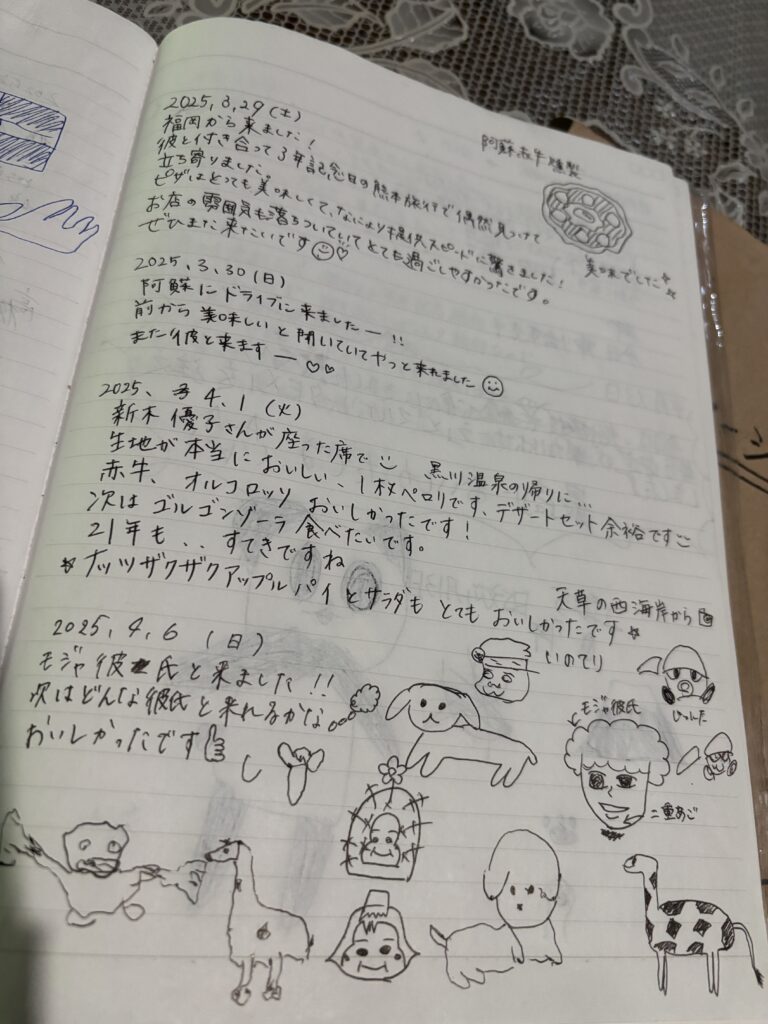 2025.3.29(土)
福岡から来ました!
彼と付き合って3年記念日の熊本旅行で偶然見つけて
立ち寄りました。
ピザはとっても美味しくて、なにより提供スピードに驚きました!
お店の雰囲気も落ちついていてとても過ごしやすかったです。
ぜひまた来たいです
阿蘇赤牛燻製
美味でした
2025.3.30(日)
阿蘇にドライブに来ましたー!!
前から美味しいと聞いていてやっと来れました
また彼と来ますー♡♡
2025. 4.1 (火)
新木優子さんが座った席で
黒川温泉の帰りに…
生地が本当においしい、1枚ペロリです、デザートセット余裕です
赤牛、オルコロッソ おいしかったです!
次はゴルゴンゾーラ食べたいです。
21年も..すてきですね
☆ナッツザクザクアップルパイとサラダもとてもおいしかったです☆
天草の西海岸から
2025.4.6 (日)
モジャ彼氏と来ました!!
次はどんな彼氏と来れるかな
おいしかったです
いのてり
モジャ彼氏
二重あご